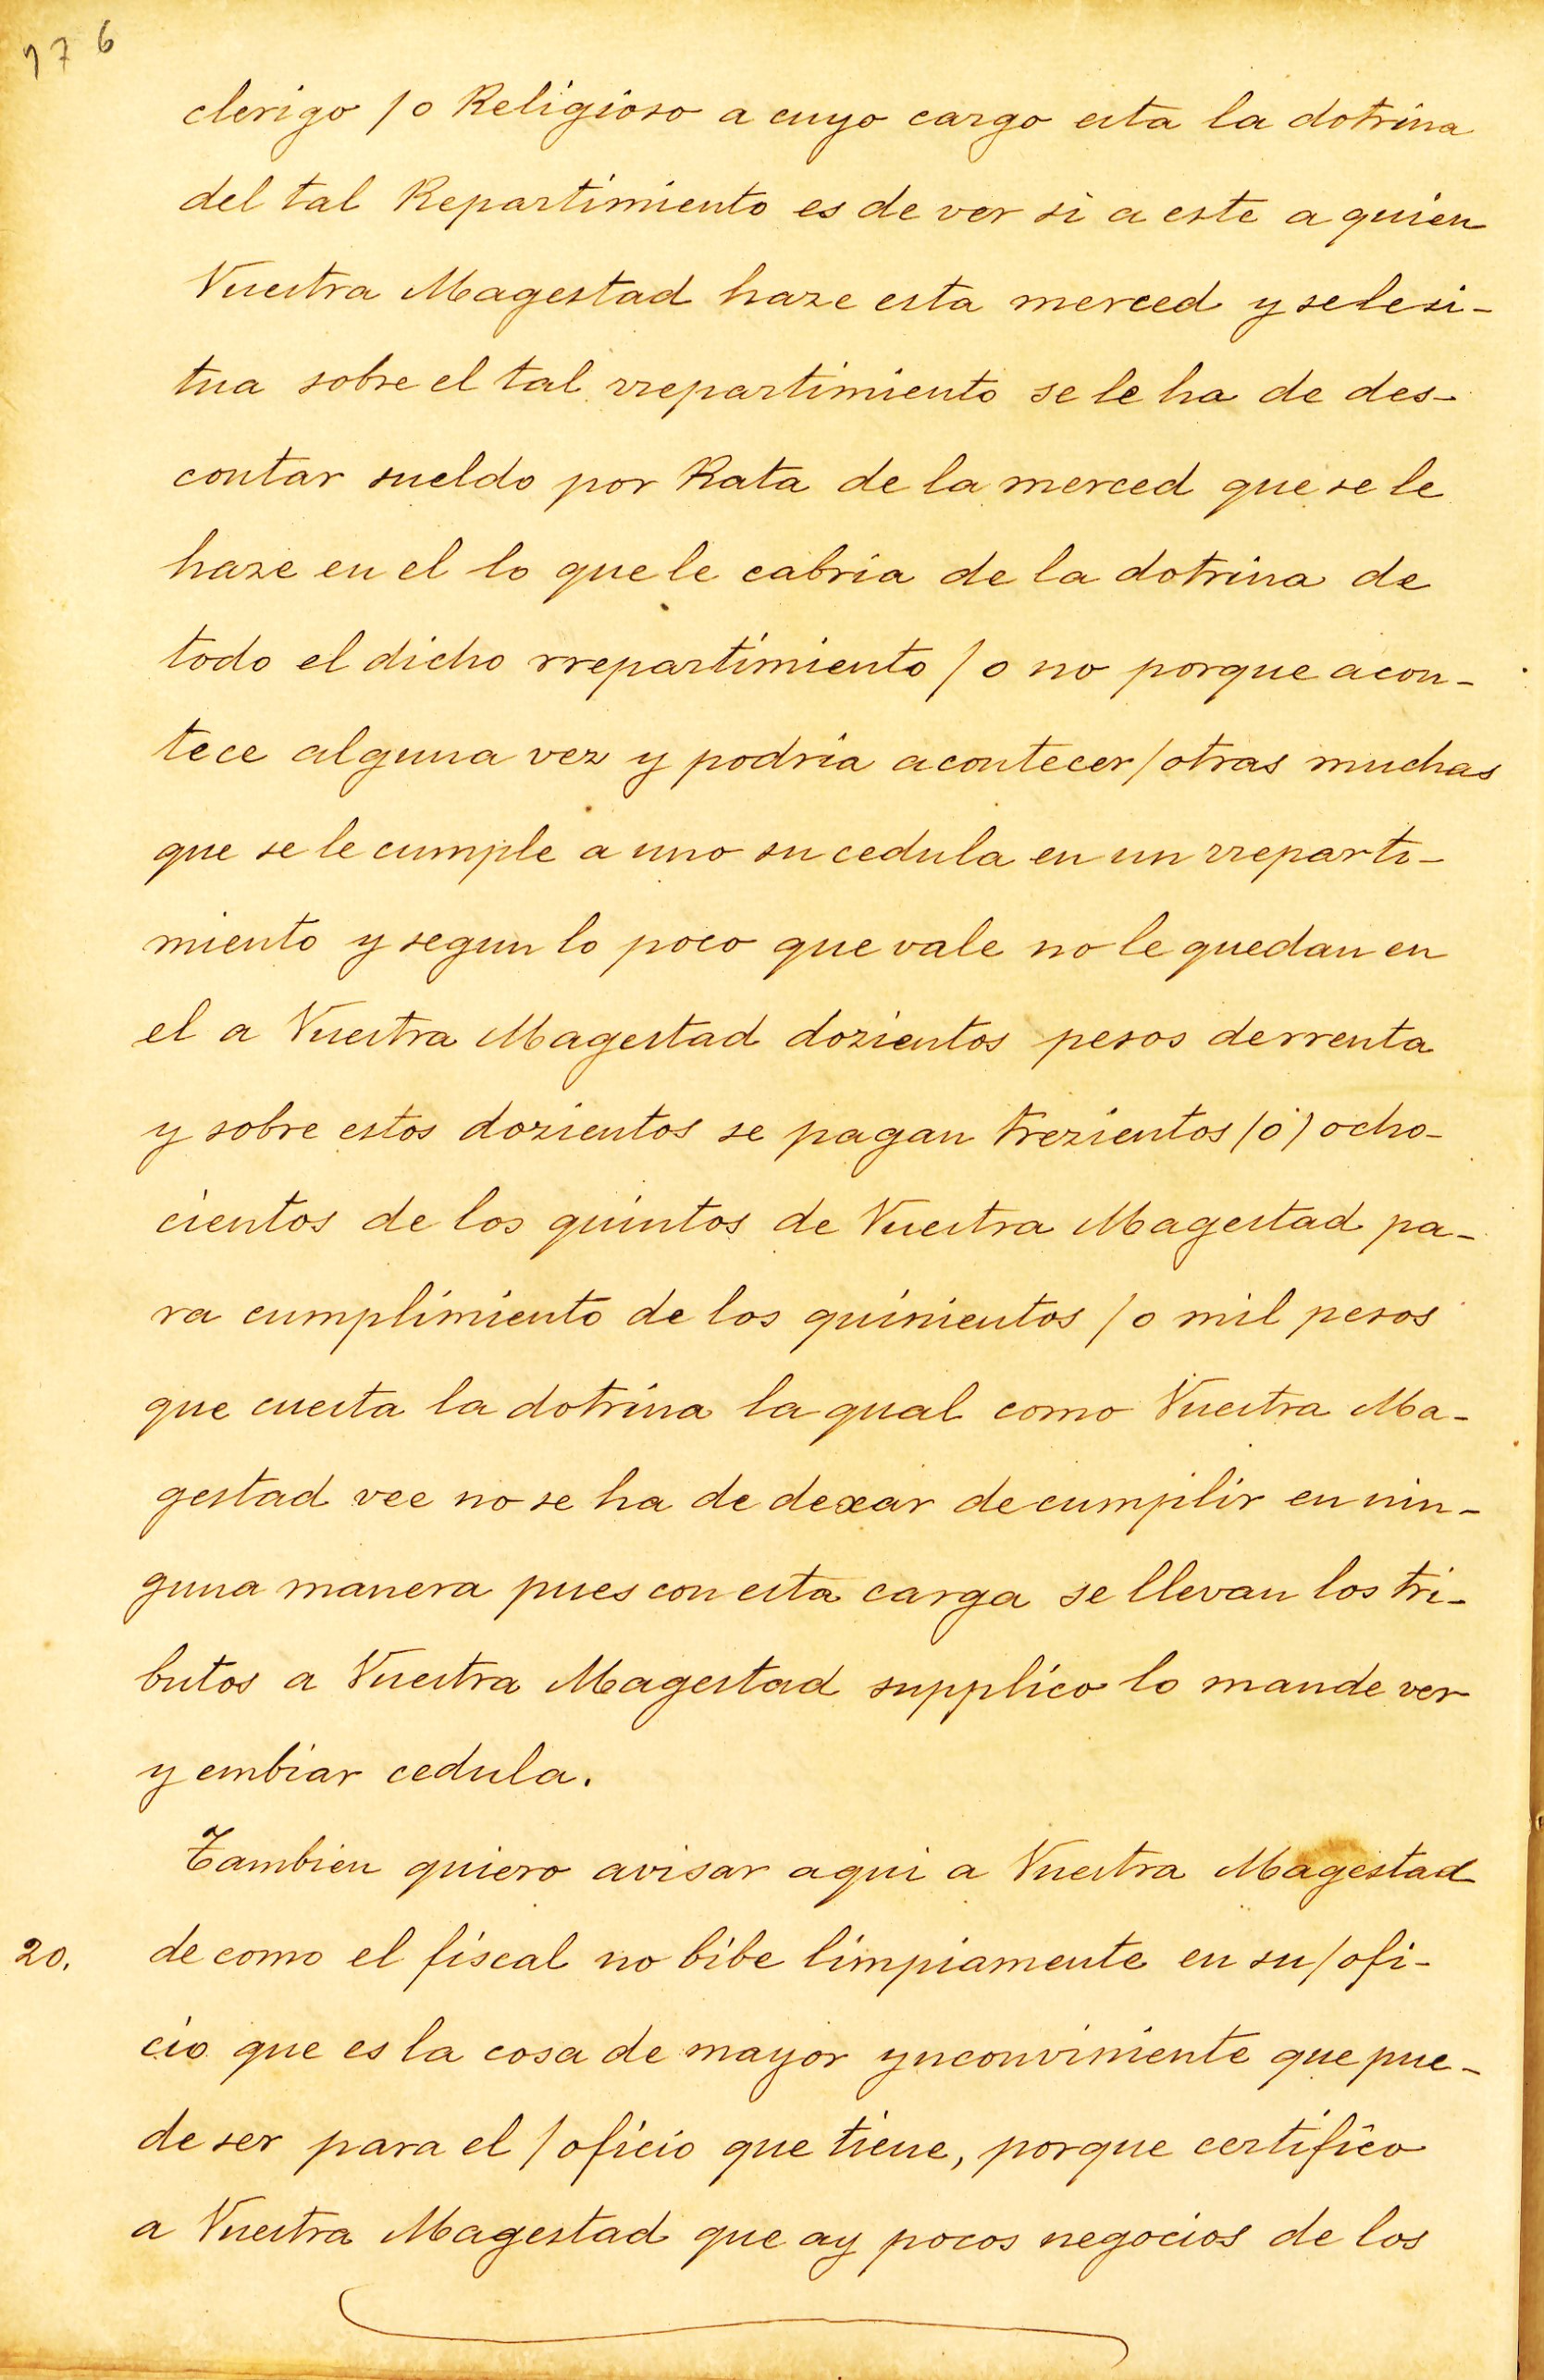 976
clerigo / o Religioso a cuyo cargo esta la dotrina
del tal Repartimiento es de ver si a este a quien
Vuestra Magestad haze esta merced y se le si-
tua sobre el tal rrepartimiento se le ha de des-
contar sueldo por Rata de la merced que se le
haze en el lo que le cabria de la dotrina de
todo el dicho rrepartimiento / o no porque acon-
tece alguna vez y podria acontecer / otras muchas
que se le cumple a uno su cedula en un rreparti-
miento y segun lo poco que vale no le quedan en
el a Vuestra Magestad dozientos pesos de rrenta
y sobre estos dozientos se pagan trezientos (o) ocho-
cientos de los quintos de Vuestra Magestad pa-
ra cumplimiento de los quinientos / o mil pesos
que cuesta la dotrina la qual como Vuestra Ma-
gestad vee no se ha de dexar de cumplir en nin-
guna manera pues con esta carga se llevan los tri-
butos a Vuestra Magestad supplico lo mande ver
y embiar cedula.
Tambien quiero avisar aqui a Vuestra Magestad
20. de como el fiscal no bibe limpiamente en su / ofi-
cio que es la cosa de mayor ynconviniente que pue-
de ser para el / oficio que tiene, porque certifico
a Vuestra Magestad que ay pocos negocios de los